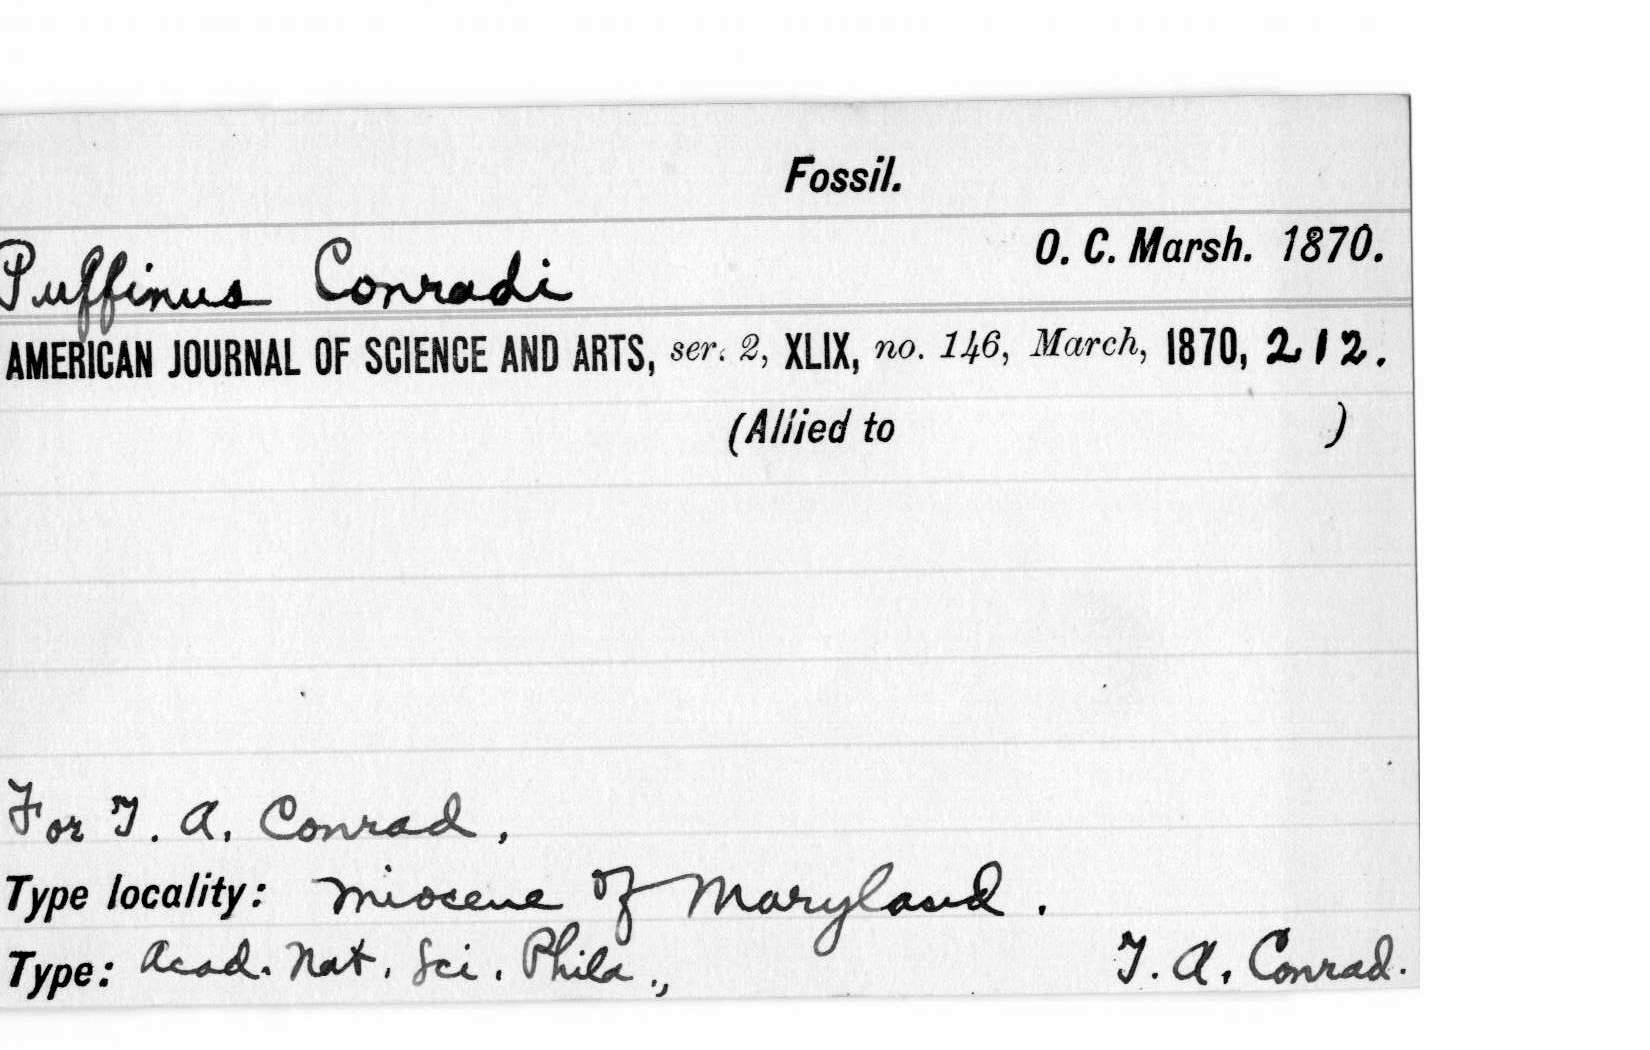 Fossil.
O. C. Marsh. 1870.
Puffinus Conradi
AMERICAN JOURNAL OF SCIENCE AND ARTS, ser. 2, XLIX, no. 146, March, 1870, 212.
(Allied to )
For T. A. Conrad,
Type locality: Miocene of Maryland.
Type: Acad. Nat. Sci. Phila., T. A. Conrad.